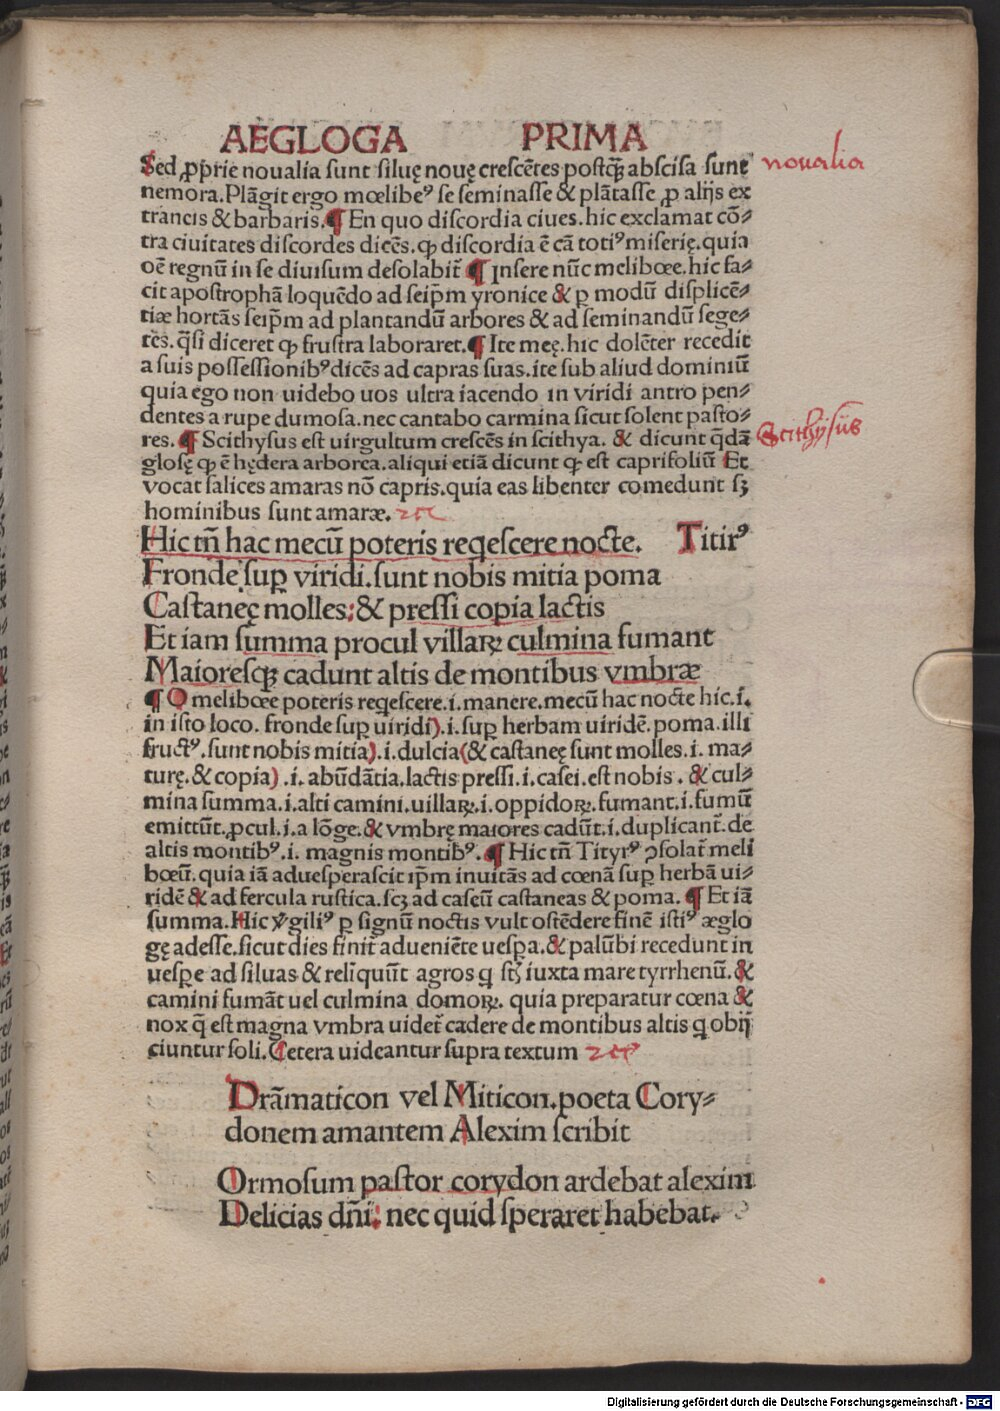 AEGLOGA PRIMA
Sed ꝓpͥrie noualia ſunt ſiluę nouę creſcẽtes poſtꝙ̃ abſciſa ſunt
nemora. Plãgit ergo mœlibeꝰ ſe ſeminaſſe & plãtaſſe ꝓ alijs ex
trancis & barbaris. ¶ En quo diſcordia ciues. hic exclamat cõ⸗
tra ciuitates diſcordes dicẽs. ꝙ diſcordia ē cã totiꝰ miſerię. quia
oē regnũ in ſe diuiſum deſolabit̃ ¶ Inſere nũc melibœe. hic fa⸗
cit apoſtrophã loquẽdo ad ſeip̄m yronice & ꝑ modũ diſplicẽ⸗
tiæ hortãs ſeip̄m ad plantandũ arbores & ad ſeminandũ ſege⸗
tes. q̄ſi diceret ꝙ fruſtra laboraret. ¶ Ite meę. hic dolẽter recedit
a ſuis poſſeſſionibꝰ dicẽs ad capras ſuas. ite ſub aliud dominiũ
quia ego non uidebo uos ultra iacendo in viridi antro pen⸗
dentes a rupe dumoſa. nec cantabo carmina ſicut ſolent paſto⸗
res. ¶ Scithyſus eſt uirgultum creſcẽs in ſcithya. & dicunt q̄dã
gloſę ꝙ ē hędera arborea. aliqui etiã dicunt ꝙ eſt caprifoliũ Et
vocat ſalices amaras nõ capris. quia eas libenter comedunt ſꝫ
hominibus ſunt amaræ.
noualia
Scithyſus
Hic tñ hac mecũ poteris reqeſcere nocte. Titirꝰ
Fronde ſuꝑ viridi. ſunt nobis mitia poma
Caſtaneę molles: & preſſi copia lactis
Et iam ſumma procul villaꝝ culmina fumant
Maioreſqꝫ cadunt altis de montibus vmbræ
¶ O melibœe poteris reqeſcere .i. manere. mecũ hac nocte hic .i.
in iſto loco. fronde ſuꝑ uiridi) .i. ſuꝑ herbam uiridē. poma. illi
fructꝰ. ſunt nobis mitia) .i. dulcia (& caſtaneę ſunt molles .i. ma⸗
turę. & copia) .i. abũdãtia. lactis preſſi .i. caſei. eſt nobis. & cul⸗
mina ſumma .i. alti camini. uillaꝝ .i. oppidoꝝ. fumant .i. fumũ
emittũt. ꝓcul .i. a lõge. & vmbrę maiores cadũt .i. duplicant̃. de
altis montibꝰ .i. magnis montibꝰ. ¶ Hic tñ Tityrꝰ ꝯſolat̃ meli
bœũ. quia iã adueſperaſcit ip̄m inuitãs ad cœnã ſuꝑ herbã ui⸗
ridē & ad fercula ruſtica. ſcꝫ ad caſeũ caſtaneas & poma. ¶ Et iã
ſumma. Hic v̄giliꝰ ꝑ ſignũ noctis vult oſtẽdere finē iſtiꝰ æglo
gę adeſſe. ſicut dies finit̃ adueniẽte ueſꝑa. & palũbi recedunt in
ueſꝑe ad ſiluas & reliquũt agros q̄ ſt̃ iuxta mare tyrrhenũ. &
camini fumãt uel culmina domoꝝ. quia preparatur cœna &
nox q̄ eſt magna vmbra uidet̃ cadere de montibus altis q̄ obij
ciuntur ſoli. Cetera uideantur ſupra textum
Drãmaticon vel Miticon. poeta Cory⸗
donem amantem Alexim ſcribit
Ormoſum paſtor corydon ardebat alexim
Delicias dñi: nec quid ſperaret habebat.
Digitalisierung gefördert durch die Deutsche Forschungsgemeinschaft - DFG